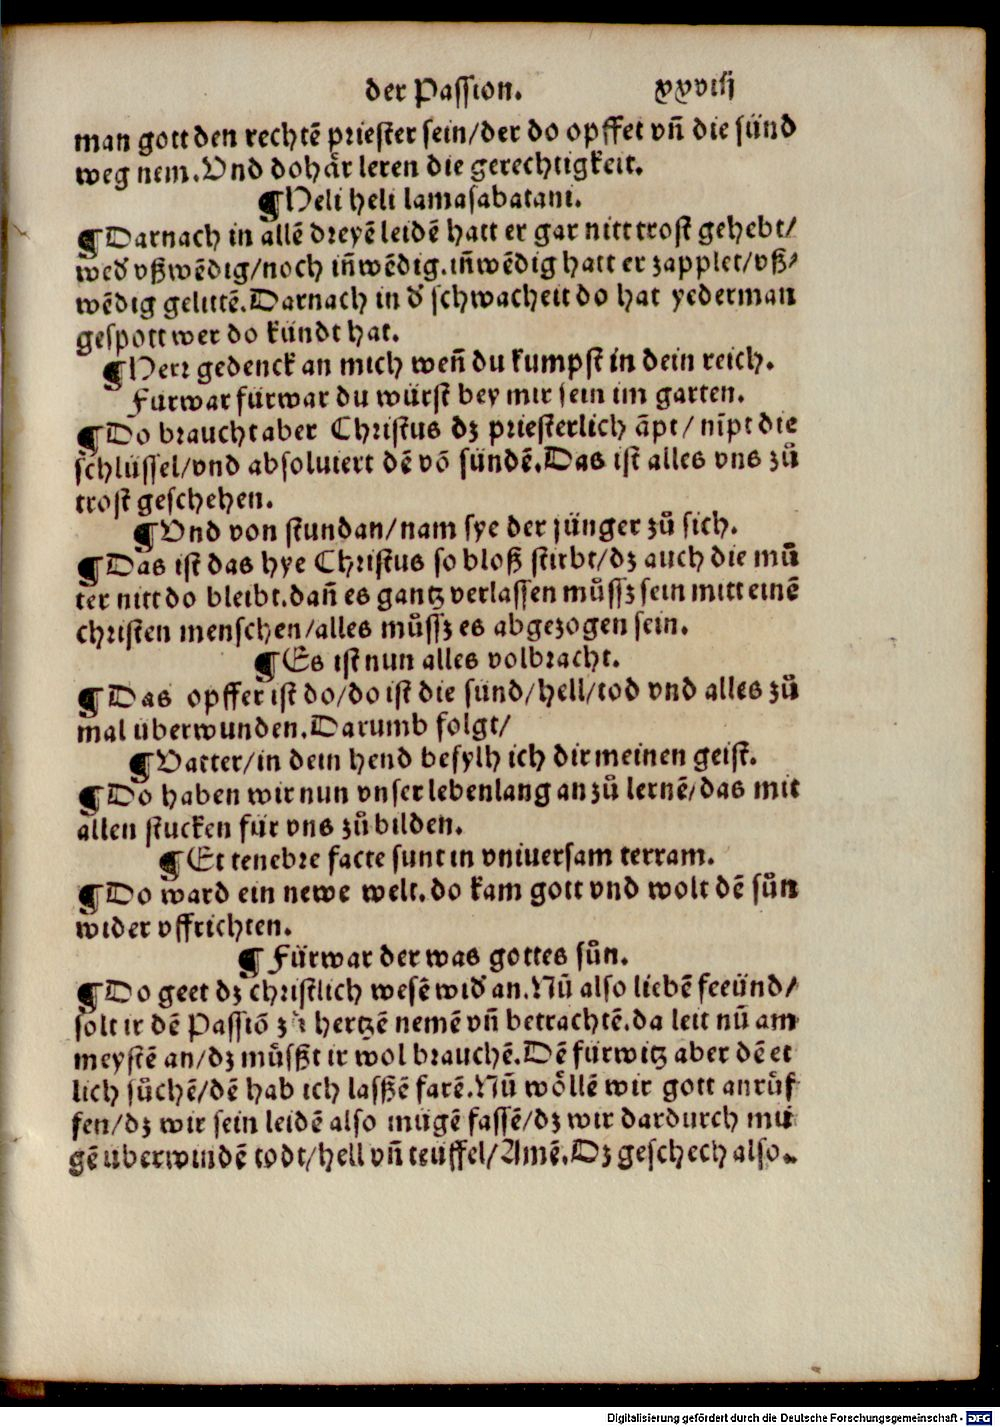 der Passion. xxviij
man gott den rechtē priester sein/der do opffet vn̄ die sünd
weg nem. Vnd dohår leren die gerechtigkeit.
¶Heli heli lamasabatani.
¶Darnach in allē dreyē leidē hatt er gar nitt trost gehebt/
wed' vßwēdig/noch in̄wēdig. in̄wēdig hatt er zapplet/vß⸗
wēdig gelittē. Darnach in d' schwacheit do hat yederman
gespott wer do kündt hat.
¶Herr gedenck an mich wen̄ du kumpst in dein reich.
Fürwar fürwar du würst bey mir sein im garten.
¶Do braucht aber Christus dz priesterlich āpt/ nīpt die
schlüssel/vnd absoluiert dē vō sündē. Das ist alles vns zů
trost geschehen.
¶Vnd von stundan/nam sye der jünger zů sich.
¶Das ist das hye Christus so bloß stirbt/dz auch die můt
ter nitt do bleibt. dan̄ es gantz verlassen můssz sein mitt einē
christen menschen/alles můssz es abgezogen sein.
¶Es ist nun alles volbracht.
¶Das opffer ist do/do ist die sünd/hell/tod vnd alles zů
mal überwunden. Darumb folgt/
¶Vatter/in dein hend befylh ich dir meinen geist.
¶Do haben wir nun vnser lebenlang an zů lernē/das mit
allen stucken für vns zů bilden.
¶Et tenebre facte sunt in vniuersam terram.
¶Do ward ein newe welt. do kam gott vnd wolt dē sůn
wider vffrichten.
¶Fürwar der was gottes sůn.
¶Do geet dz christlich wesē wid' an. Nū also liebē freünd/
solt ir dē Passiō zů hertzē nemē vn̄ betrachtē. da leit nū am
meystē an/dz můsßt ir wol brauchē. Dē fürwitz aber dē et
lich sůchē/dē hab ich lasßē farē. Nū wöllē wir gott anrůf
fen/dz wir sein leidē also mügē fassē/dz wir dardurch mü
gē überwindē todt/hell vn̄ teüffel/Amē. Dz geschech also.
Digitalisierung gefördert durch die Deutsche Forschungsgemeinschaft - DFG